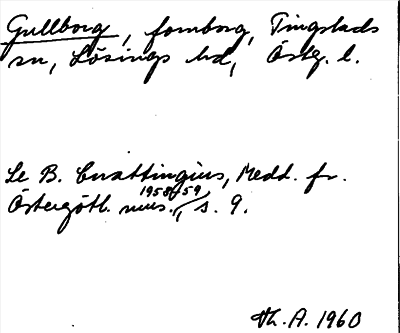 Gullborg, fornborg, Tingstads
sn, Lösings hd, Östg. l.
Se B. Cnattingius, Medd. fr.
Östergötl. mus. 1958/59, s. 9.
Th. A. 1960